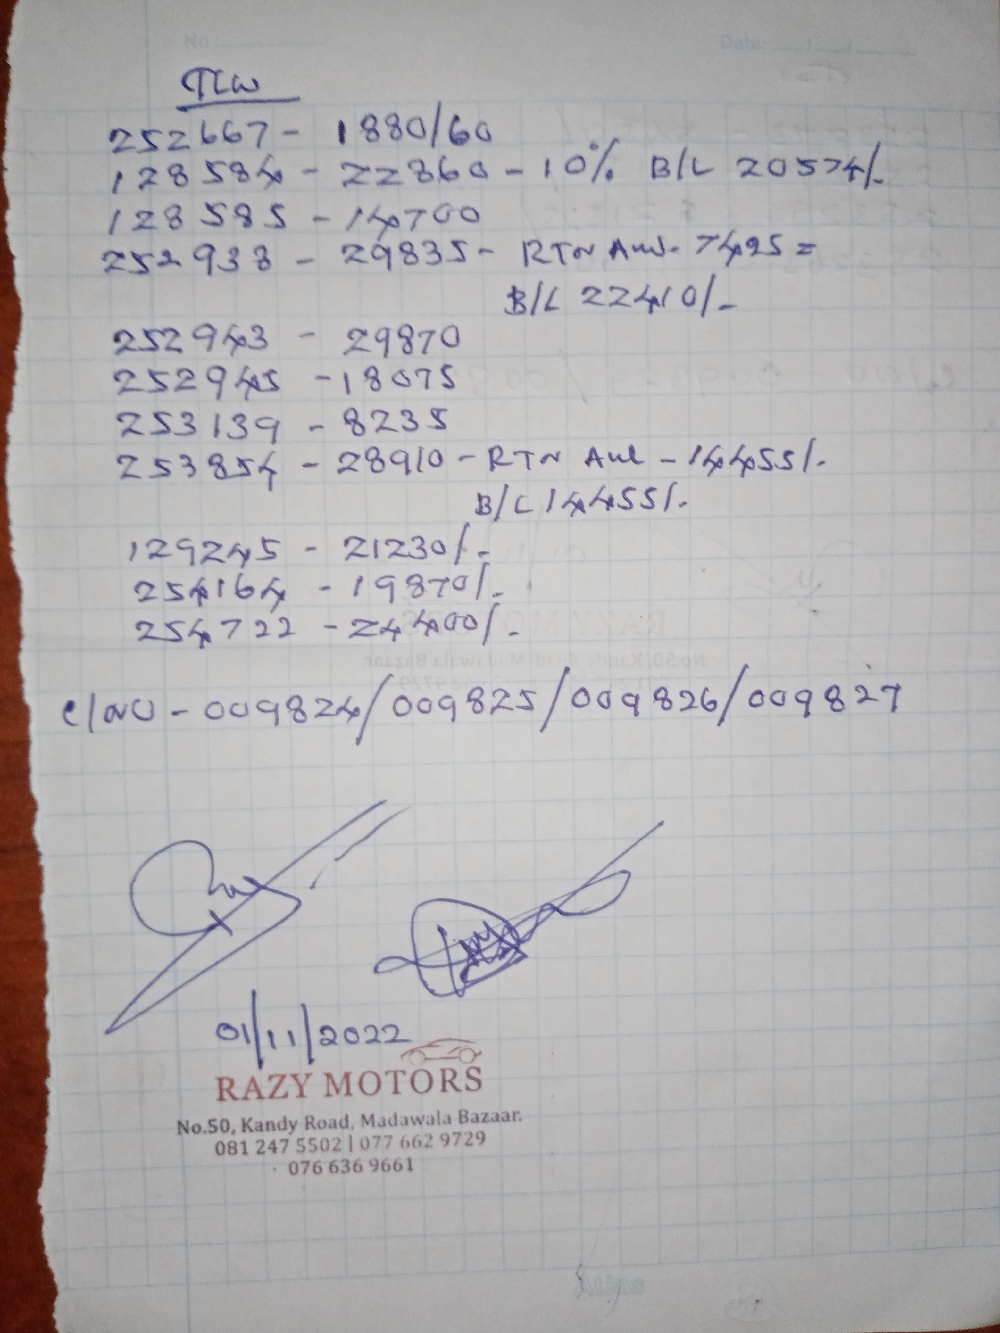 No:
Date:
TCW
252667 - 1880/60
128584 - 22860 - 10% B/L 20574/-
128585 - 14700
252938 - 29835 - RTN Aml - 7425 =
B/L 22410/-
252943 - 29870
252945 - 18075
253139 - 8235
253854 - 28910 - RTN Aml - 14455/-
B/L 14455/-
129245 - 21230/-
254164 - 19870/-
254722 - 24400/-
C/NO - 009824/009825/009826/009827
01/11/2022
RAZY MOTORS
No.50, Kandy Road, Madawala Bazaar.
081 247 5502 | 077 662 9729
076 636 9661